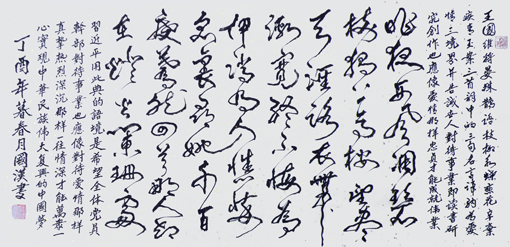 王國維將晏殊鵲踏枝柳永蝶戀花辛棄
疾青玉案三首詞中的三句名言譯為愛
情三境界并告誡世人對待事業和讀書研
究創作也應像愛情那樣忠貞才能成就偉業
昨夜西風凋碧
樹獨上高樓望盡
天涯路衣帶
漸寬終不悔為
伊消得人憔悴
衆裏尋她千百
度驀然回首那人却
在燈火闌珊處
習近平用此典的語境是希望全體黨員
幹部對待事業也應像對待愛情那樣
真摯熱烈深沉那樣一往情深才能萬衆一
心實現中華民族偉大復興的中國夢
丁酉年暮春月國漢書